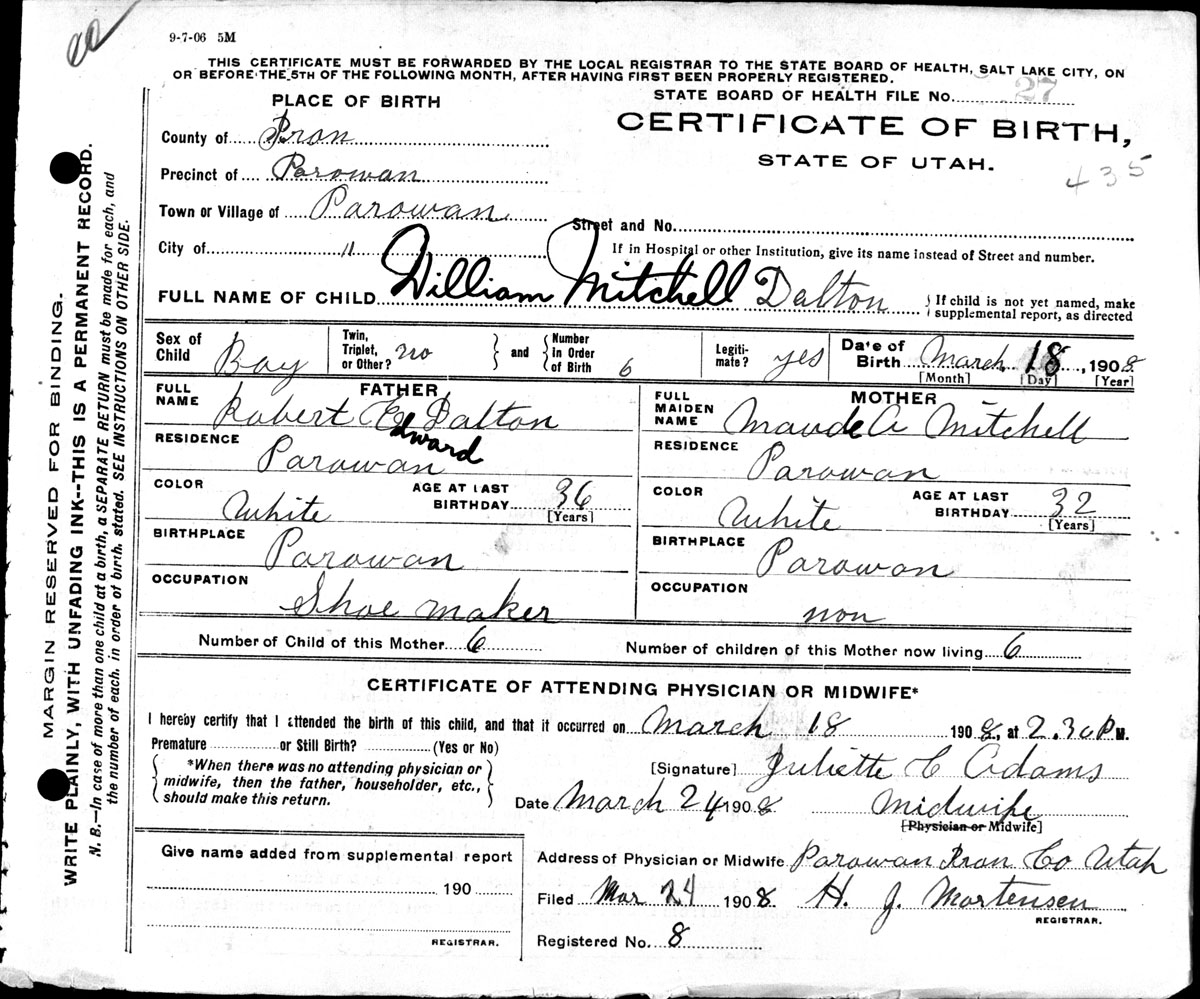 9-7-06 5M
THIS CERTIFICATE MUST BE FORWARDED BY THE LOCAL REGISTRAR TO THE STATE BOARD OF HEALTH, SALT LAKE CITY, ON
OR BEFORE THE 5TH OF THE FOLLOWING MONTH, AFTER HAVING FIRST BEEN PROPERLY REGISTERED.
PLACE OF BIRTH
STATE BOARD OF HEALTH FILE No. 27
County of Iron
CERTIFICATE OF BIRTH,
STATE OF UTAH.
435
Precinct of Parowan
Town or Village of Parowan
Street and No.
City of "
If in Hospital or other Institution, give its name instead of Street and number.
FULL NAME OF CHILD William Mitchell Dalton
If child is not yet named, make
supplemental report, as directed
Sex of Child Boy
Twin, Triplet, or Other? no
and
Number In Order of Birth 6
Legiti-mate? yes
Date of Birth March 18, 1908
[Month] [Day] [Year]
FATHER
FULL NAME Robert E Dalton
Edward
RESIDENCE Parowan
COLOR White
AGE AT LAST BIRTHDAY 36
[Years]
BIRTHPLACE Parowan
OCCUPATION Shoe maker
MOTHER
FULL MAIDEN NAME Maude A Mitchell
RESIDENCE Parowan
COLOR White
AGE AT LAST BIRTHDAY 32
[Years]
BIRTHPLACE Parowan
OCCUPATION non
Number of Child of this Mother 6
Number of children of this Mother now living 6
CERTIFICATE OF ATTENDING PHYSICIAN OR MIDWIFE*
I hereby certify that I attended the birth of this child, and that it occurred on March 18 1908, at 2.30 P M.
Premature or Still Birth? (Yes or No)
*When there was no attending physician or
midwife, then the father, householder, etc.,
should make this return.
[Signature] Juliette C Adams
Date March 24 1908
Midwife
[Physician or Midwife]
Give name added from supplemental report
190
REGISTRAR.
Address of Physician or Midwife Parowan Iron Co Utah
Filed Mar 24 1908 H. J. Mortensen
REGISTRAR.
Registered No. 8
MARGIN RESERVED FOR BINDING.
WRITE PLAINLY, WITH UNFADING INK--THIS IS A PERMANENT RECORD.
N. B.—In case of more than one child at a birth, a SEPARATE RETURN must be made for each, and
the number of each, in order of birth, stated. SEE INSTRUCTIONS ON OTHER SIDE.